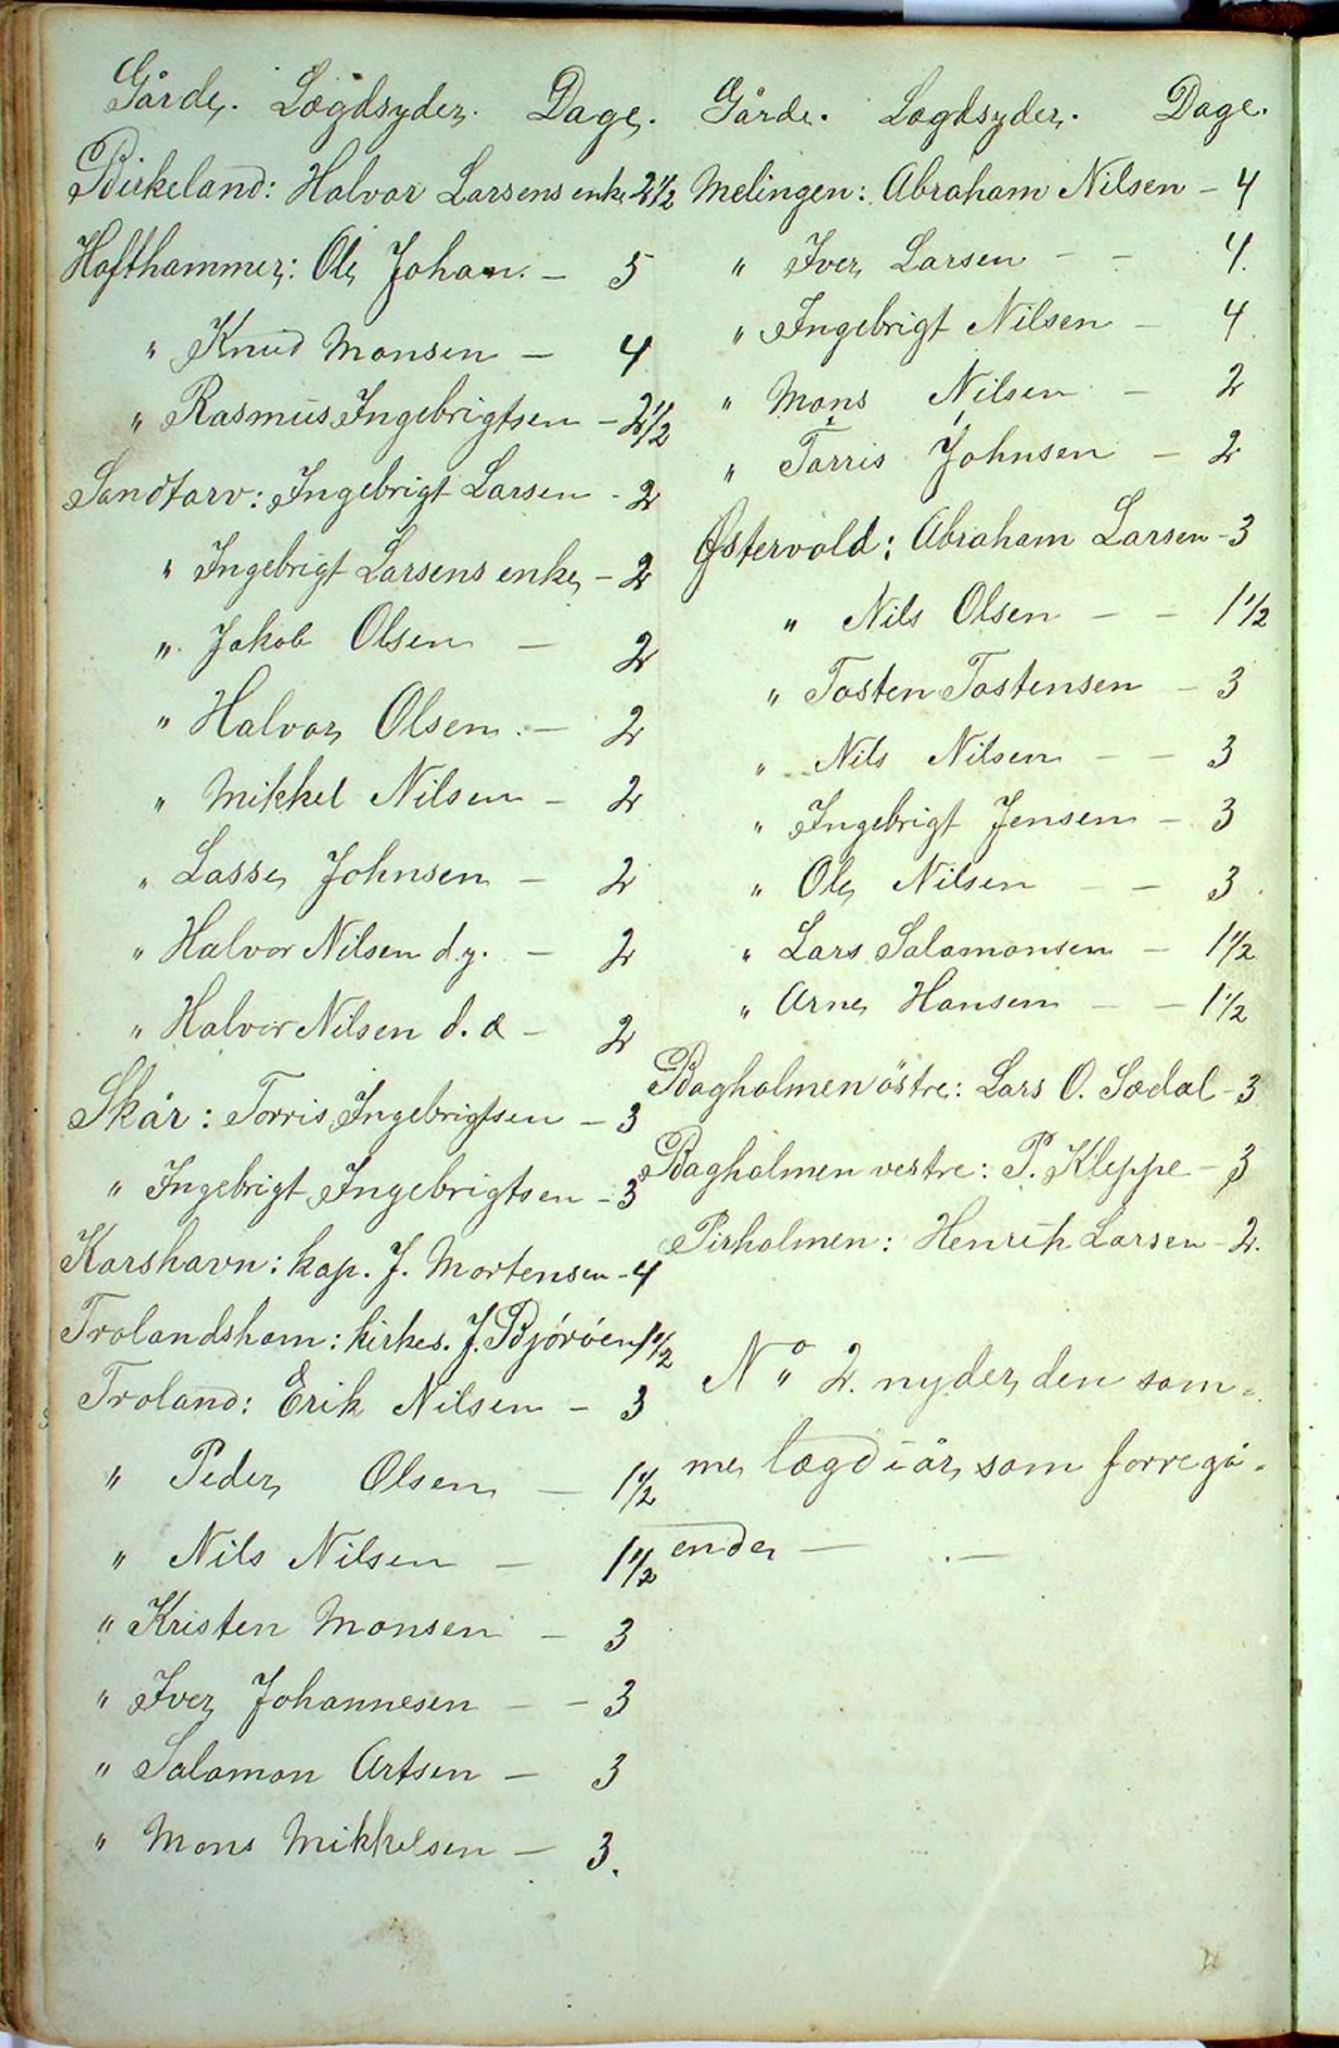 Gårde. Lægdsyder. Dage.
Birkeland: Halvor Larsens enke 2 1/2
Hafthammer: Ole Johan. — 5
" Knud Monsen — 4
" Rasmus Ingebrigtsen — 2 1/2
Sandtorv: Ingebrigt Larsen - 2
" Ingebrigt Larsens enke — 2
" Jakob Olsen — 2
" Halvor Olsen. — 2
" Mikkel Nilsen — 2
" Lasse Johnsen — 2
" Halvor Nilsen d.y. — 2
" Halvor Nilsen d. æ — 2
Skår: Torris Ingebrigtsen — 3
" Ingebrigt Ingebrigtsen — 3
Korshavn: kap. J. Mortensen — 4
Trolandsham: kirkes. J. Bjøröen 1 1/2
Troland: Erik Nilsen — 3
" Peder Olsen — 1 1/2
" Nils Nilsen — 1 1/2
" Kristen Monsen — 3
" Iver Johannesen — — 3
" Salamon Artsen — 3
" Mons Mikkelsen — 3.
Gårde. Lægdsyder. Dage.
Melingen: Abraham Nilsen — 4
" Iver Larsen — — 4.
" Ingebrigt Nilsen — 4
" Mons Nilsen — 2
" Torris Johnsen — 2
Østervold: Abraham Larsen — 3
" Nils Olsen — — 1 1/2
" Tosten Tostensen — 3
" Nils Nilsen — — 3
" Ingebrigt Jensen — 3
" Ole Nilsen — — 3
" Lars Salamonsen — 1 1/2
" Arne Hansen — — 1 1/2
Bagholmen östre: Lars O. Sædal — 3
Bagholmen vestre: P. Kleppe — 3
Pirholmen: Henrik Larsen — 2.
No 2. nyder den sam-
me lægd i år som forregå-
ende — . —